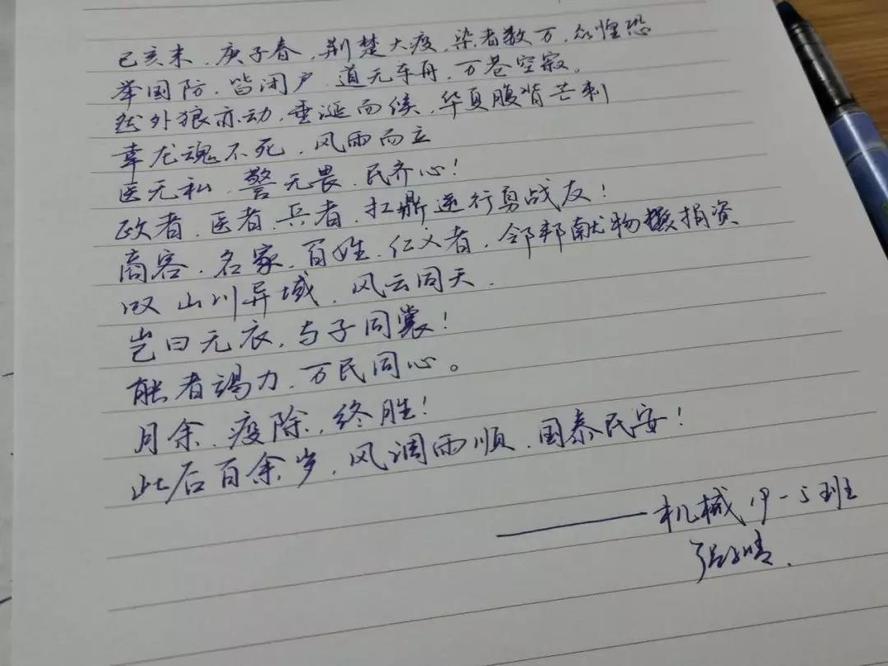 己亥末，庚子春，荆楚大疫，染者数万，众惶恐
举国防，皆闭户，道无车舟，万巷空寂。
然外狼亦动，垂涎而候，华夏腹背芒刺
幸龙魂不死，风雨而立
医无私，警无畏，民齐心！
政者，医者，兵者，扛鼎逆行勇战友！
商客，名家，百姓，仁义者，邻邦献物捐资
叹 山川异域，风云同天，
岂曰无衣，与子同裳！
能者竭力，万民同心。
月余，疫除，终胜！
此后百余岁，风调雨顺，国泰民安！
——机械19-5班